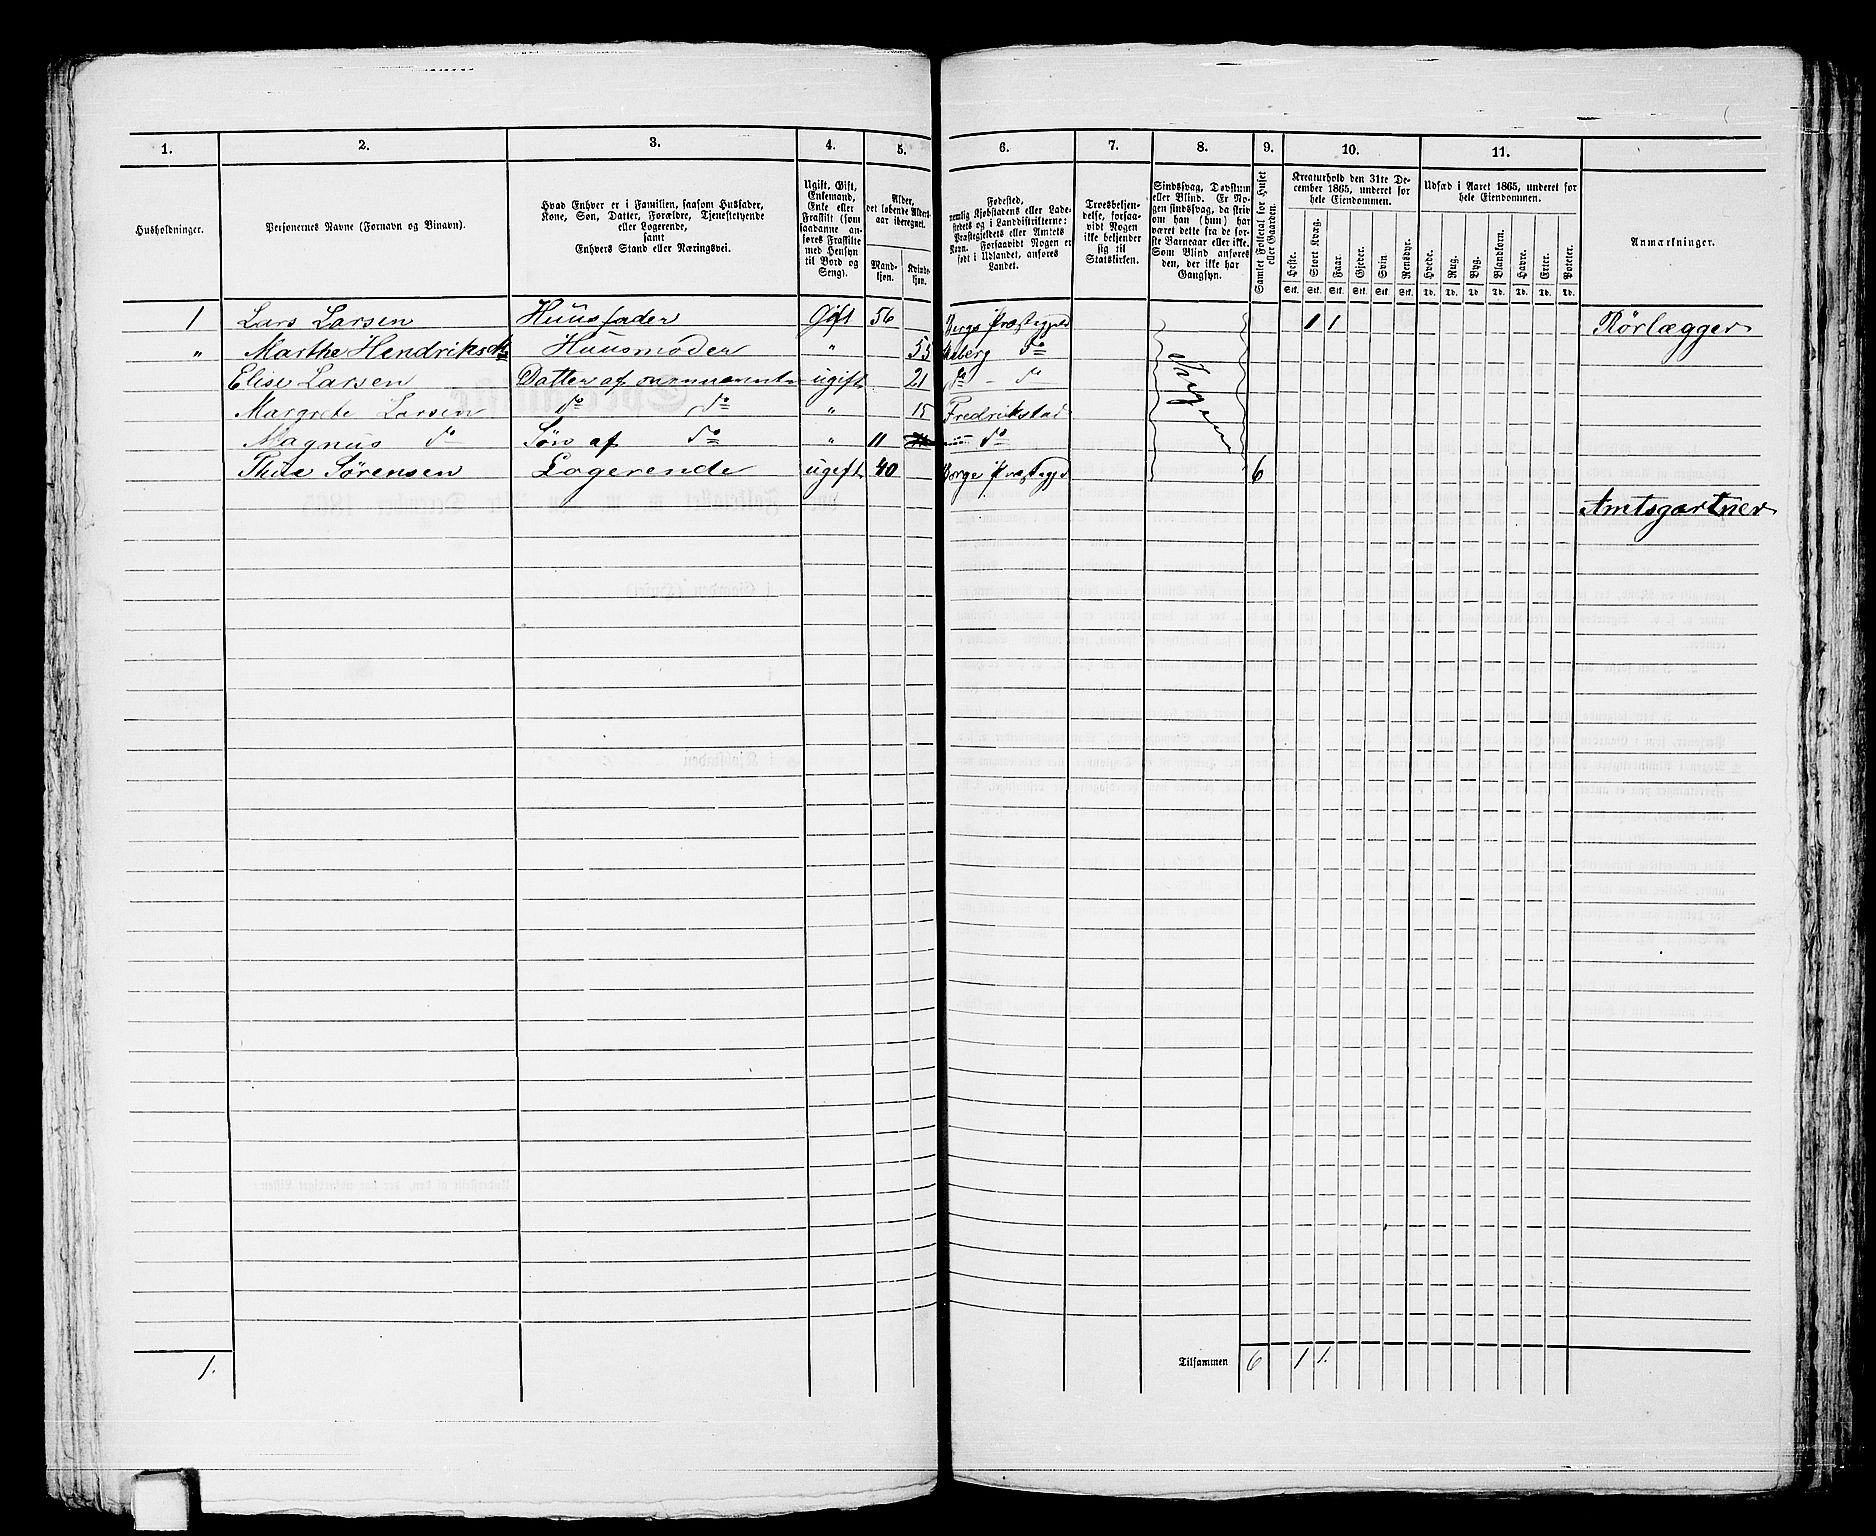 1. 2. 3. 4. 5. 6. 7. 8. 9. 10. 11.
Husholdninger.
Personernes Navne (Fornavn og Binavn).
Hvad Enhver er i Familien, saasom Husfader,
Kone, Søn, Datter, Forældre, Tjenestetyende
eller Logerende,
samt
Enhvers Stand eller Næringsvei.
Ugift, Gift,
Enkemand,
Enke eller
Fraskilt (som
saadanne an-
føres Fraskilte
med Hensyn
til Bord og
Seng).
Alder,
det løbende Alders-
aar iberegnet.
Mand-
kjøn.
Kvinde-
kjøn.
Fødested,
nemlig Kjøbstadens eller Lade-
stedets og i Landdistrikterne:
Præstegjeldets eller Amtets
Navn. Forsaavidt Nogen er
født i Udlandet, anføres
Landet.
Troesbekjen-
delse, forsaa-
vidt Nogen
ikke bekjender
sig til
Statskirken.
Sindssvag, Døvstum
eller Blind. Er No-
gen sindssvag, da skriv
om han (hun) har
været dette fra de før-
ste Barneaar eller ikke.
Som Blind anføres
den, der ikke har
Gangsyn.
Samlet Folketal for Huset
eller Gaarden.
Kreaturhold den 31te De-
cember 1865, underet for
hele Eiendommen.
Heste. Stort Kvæg. Faar. Gjeder. Svin Rensdyr.
Stk. Stk. Stk. Stk. Stk. Stk.
Udsæd i Aaret 1865, underet for
hele Eiendommen.
Hvede. Rug. Byg. Blandkorn. Havre. Erter. Poteter.
Td. Td. Td. Td. Td. Td. Td.
Anmærkninger.
1 Lars Larsen Huusfader Gift 56 1 1 Rörlægger
" Marthe Huusmoder " 53 do
Elise Larsen Datter af ugift 21 do - do
Margrete Larsen do do " 15 Fredrikstad
Magnus do Søn af do " 11 do
Sørensen Logerende ugift 40 6
Ingen
Amtsgartner
1. Tilsammen 6 1 1.